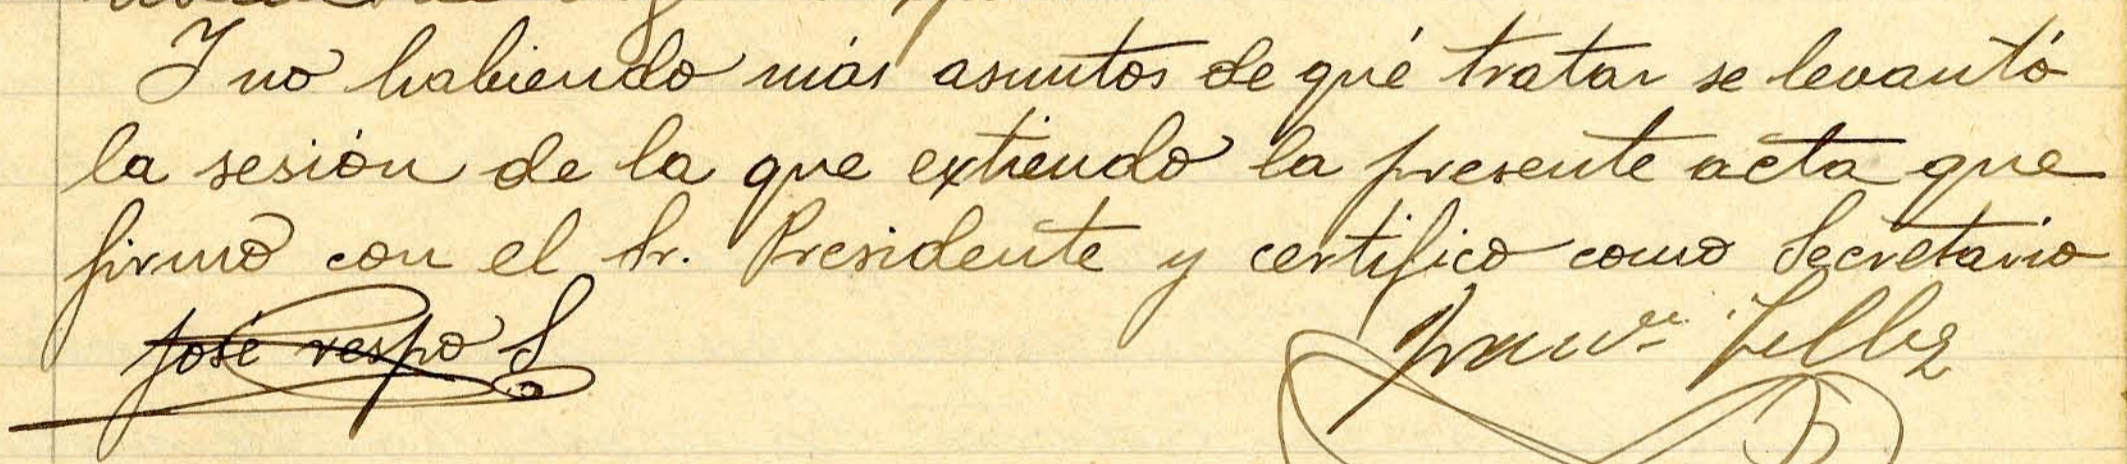 Y no habiendo más asuntos de qué tratar se levantó
la sesión de la que extiendo la presente acta que
firmo con el Sr. Presidente y certifico como Secretario
José S